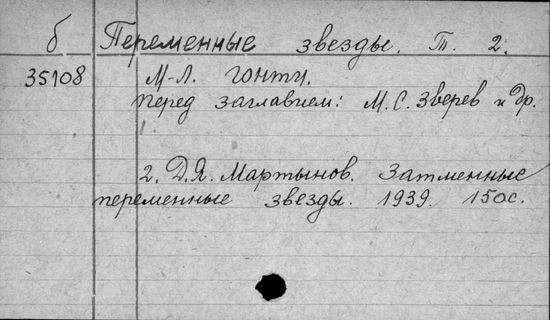 б Переменные звезды. Т. 2.
35108 М-Л. ГОНТИ.
перед заглавием: М.С. Зверев и др.
2. Д.Я. Мартынов. Затменные
переменные звезды. 1939. 150с.